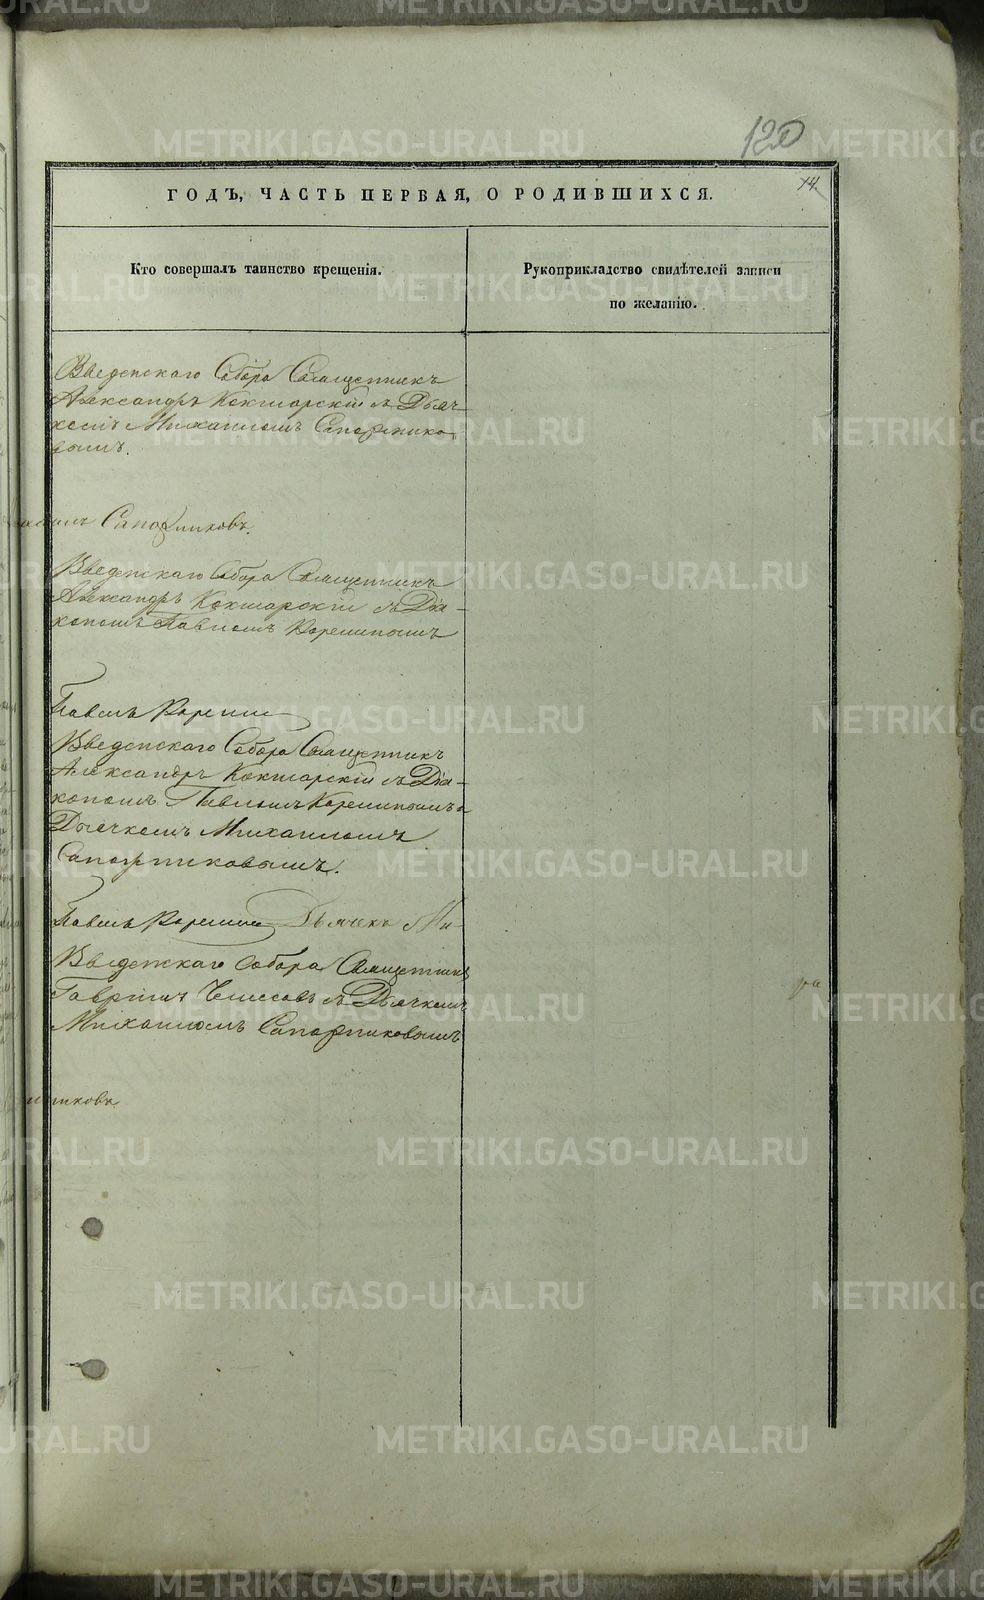 120
14.
ГОДЪ, ЧАСТЬ ПЕРВАЯ, О РОДИВШИХСЯ.
Кто совершалъ таинство крещенія.
Рукоприкладство свидѣтелей записи
по желанію.
Введенскаго Собора Священникъ
Александръ Кокшарскій съ Дьяч-
комъ Михаиломъ Сапожнико
вымъ.
Сапожниковъ.
Введенскаго Собора Священникъ
Александръ Кокшарскій съ Діа-
кономъ Павломъ
Павелъ
Введенскаго Собора Священникъ
Александръ Кокшарскій съ Діа-
кономъ Павломъ
Дьячкомъ Михаиломъ
Сапожниковымъ.
Павелъ Дьячекъ Ми-
Введенскаго Собора Священникъ
Гавріилъ съ Дьячкомъ
Михаиломъ Сапожниковымъ
никовъ
METRIKI.GASO-URAL.RU